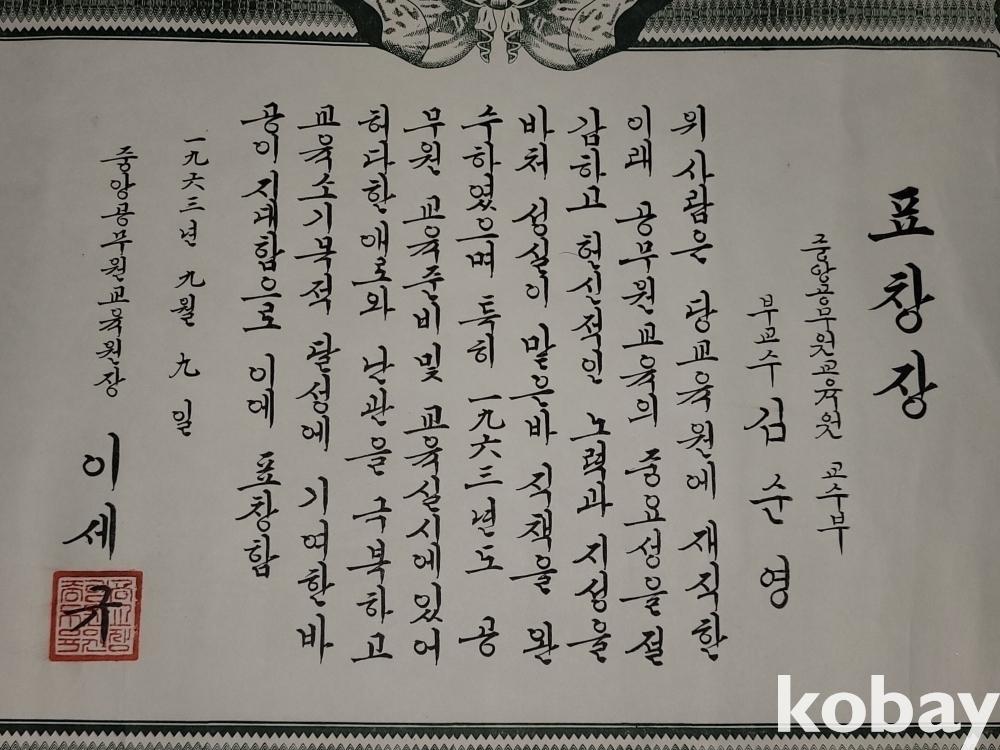 표창장
중앙공무원교육원 교수부
부교수 김순영
위 사람은 당교육원에 재직한
이래 공무원교육의 중요성을 절
감하고 헌신적인 노력과 지성을
바쳐 성실이 맡은바 직책을 완
수하였으며 특히 一九六三년도 공
무원 교육준비 및 교육실시에있어
허다한 애로와 난관을 극복하고
교육소기목적 달성에 기여한 바
공이 지대함으로 이에 표창함
一九六三년 九월 九일
중앙공무원교육원장 이세규
kobay